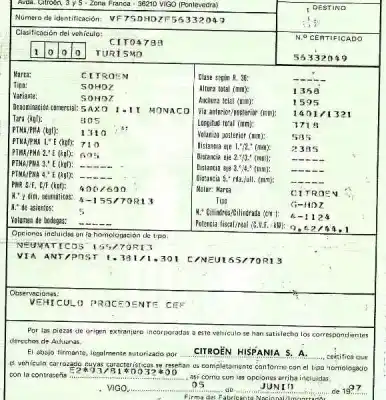 Avda. Citroën, 3 y 5 - Zona Franca - 36210 VIGO (Pontevedra)
DESTINO
Número de identificación: VF7S0HDZF56332049
Clasificación del vehículo:
CIT0478B
N.º CERTIFICADO
1 0 0 0 TURISMO
56332049
Marca: CITROEN
Clase según R. 36: -----
Tipo: S0HDZ
Altura total (mm): 1368
Variante: S0HDZ
Anchura total (mm): 1595
Denominación comercial: SAXO 1.1I MONACO
Vía anterior/posterior (mm): 1401/1321
Tara (kgf): 805
Longitud total (mm): 3718
PTMA/PMA (kgf): 1310
Voladizo posterior (mm): 585
PTMA/PMA 1.º E (kgf): 710
Distancia eje 1.º/2.º (mm): 2385
PTMA/PMA 2.º E (kgf): 695
Distancia eje 2.º/3.º (mm): -----
PTMA/PMA 3.º E (kgf): -----
Distancia eje 3.º/4.º (mm): -----
PTMA/PMA 4.º E (kgf): -----
Distancia 5.ª rda./ult. (mm): -----
PMR S/F, C/F (kgf): 400/600
Motor: Marca CITROEN
N.º y dim. neumáticos: 4-155/70R13
Tipo G-HDZ
N.º de asientos: 5
N.º Cilindros/Cilindrada (cm³): 4-1124
Volumen de bodegas: -----
Potencia fiscal/real (C.V.F. - kW): 9.62/44.1
Opciones incluidas en la homologación de tipo:
NEUMATICOS 165/70R13
VIA ANT/POST 1.381/1.301 C/NEU165/70R13
Observaciones:
VEHICULO PROCEDENTE CEE
Por las piezas de origen extranjero incorporadas a este vehículo se han satisfecho los correspondientes
derechos de Aduanas.
El abajo firmante, legalmente autorizado por CITROËN HISPANIA S. A. , certifica que
el vehículo carrozado cuyas características se reseñan es completamente conforme con el tipo homologado
con la contraseña E2*93/81*0032*00 , así como con las opciones arriba incluidas.
, VIGO, 05 de JUNIO de 1997
Firma del Fabricante Nacional/Importador